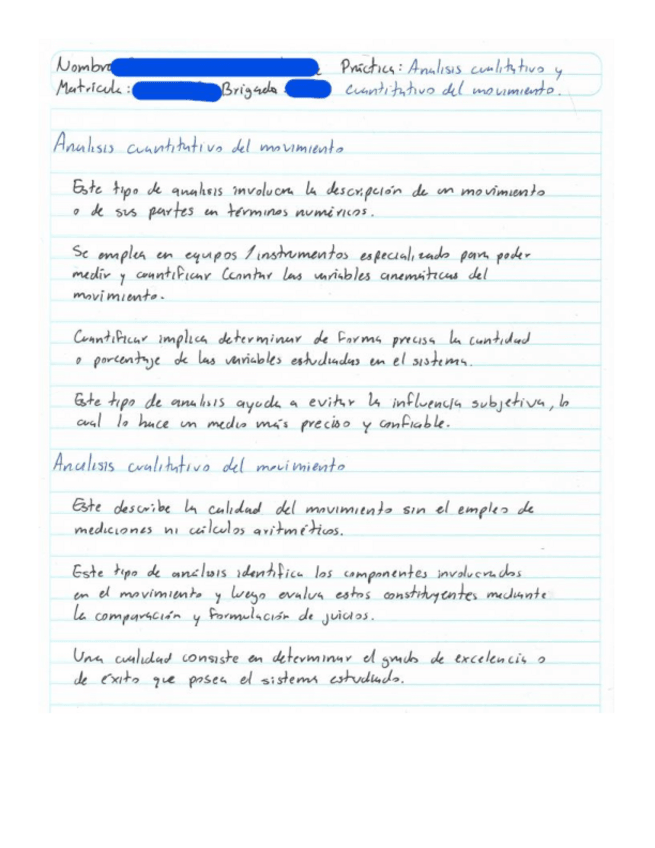 Nombre Práctica: Analisis cualitativo y
Matricula: Brigada: cuantitativo del movimiento.
Analisis cuantitativo del movimiento
Este tipo de analisis involucra la descripción de un movimiento
o de sus partes en términos numéricos.
Se emplea en equipos/instrumentos especializado para poder
medir y cuantificar (contar las variables cinemáticas del
movimiento.
Cuantificar implica determinar de forma precisa la cantidad
o porcentaje de las variables estudiadas en el sistema.
Este tipo de analisis ayuda a evitar la influencia subjetiva, lo
cual lo hace un medio más preciso y confiable.
Analisis cualitativo del movimiento
Este describe la calidad del movimiento sin el empleo de
mediciones ni cálculos aritméticos.
Este tipo de análisis identifica los componentes involucrados
en el movimiento y luego evalua estos constituyentes mediante
la comparación y formulación de juicios.
Una cualidad consiste en determinar el grado de excelencia o
de éxito que posea el sistema estudiado.